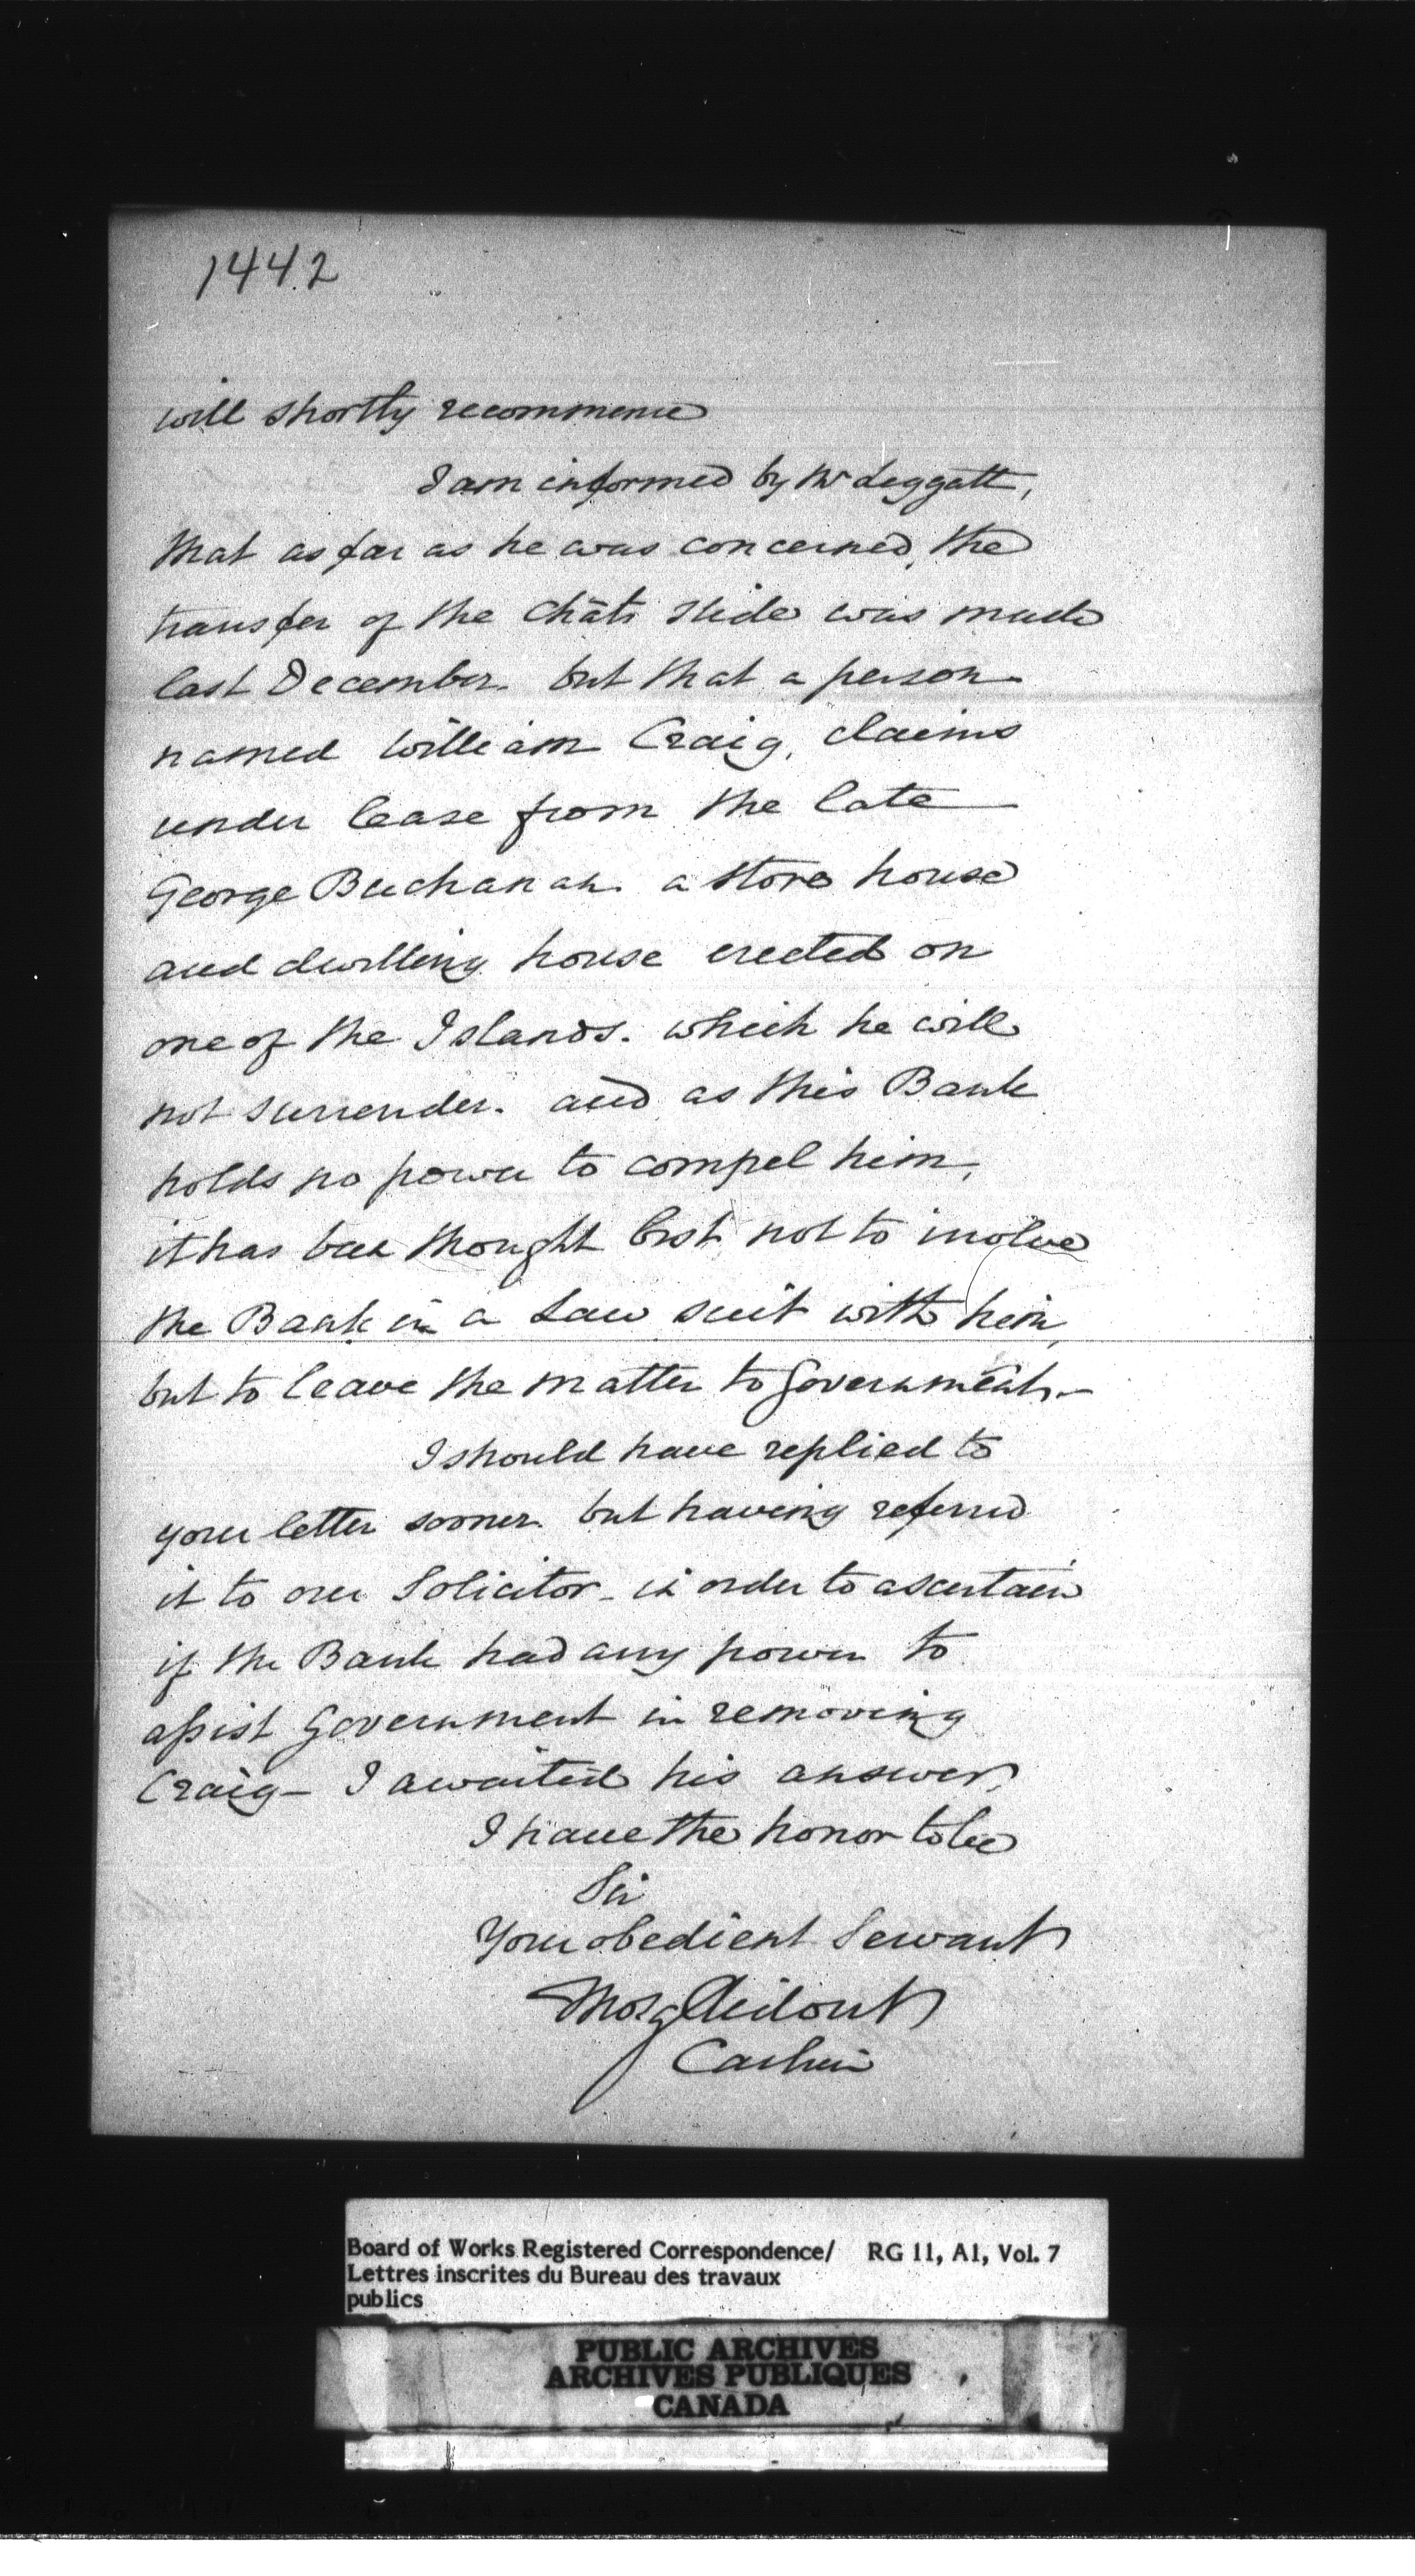 1442
will shortly recommence
I am informed by Mr Leggatt,
that as far as he was concerned, the
transfer of the Châts slide was made
last December. but that a person
named William Craig, claims
under lease from the late
George Buchanan. a store house
and dwelling house erected on
one of the Islands. which he will
not surrender. and as this Bank
holds no power to compel him,
it has been thought best not to involve
the Bank in a Law suit with him,
but to leave the matter to Government.
I should have replied to
your letter sooner. but having referred
it to our Solicitor - in order to ascertain
if the Bank had any power to
assist Government in removing
Craig - I awaited his answer,
I have the honor to be
Sir
Your obedient Servant
Thos G Ridout
Cashier
Board of Works Registered Correspondence/ RG 11, A1, Vol. 7
Lettres inscrites du Bureau des travaux
publics
PUBLIC ARCHIVES
ARCHIVES PUBLIQUES
CANADA